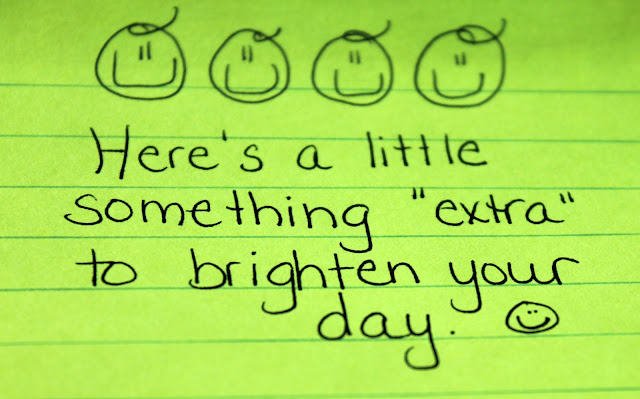 Here's a little
something "extra"
to brighten your
day.